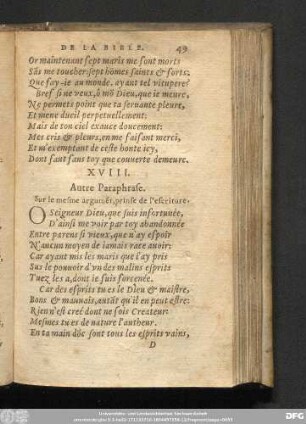 DE LA BIBLE. 49
Or maintenant sept maris me sont morts
Sãs me toucher: sept hõmes saints & forts:
Que fay-ie au monde, ayant tel vitupere?
Bref si ne veux, ô mõ Dieu, que ie meure,
Ne permets point que ta seruante pleure,
Et mene dueil perpetuellement:
Mais de ton ciel exauce doucement:
Mes cris & pleurs, en me faisant merci,
Et m'exemptant de ceste honte icy,
Dont sauf sans toy que couuerte demeure.
XVIII.
Autre Paraphrase.
Sur le mesme argumẽt, prinse de l'escriture.
O Seigneur Dieu, que suis infortunée,
D'ainsi me voir par toy abandonnée
Entre parens si vieux, que n'ay espoir
N'aucun moyen de iamais race auoir:
Car ayant mis les maris que i'ay pris
Sus le pouuoir d'vn des malins esprits
Tuez les a, dont ie suis forcenée.
Car des esprits tu es le Dieu & maistre,
Bons & mauuais, autãt qu'il en peut estre:
Rien n'est creé dont ne sois Createur:
Mesmes tu es de nature l'autheur.
En ta main dõc sont tous les esprits vains,
D